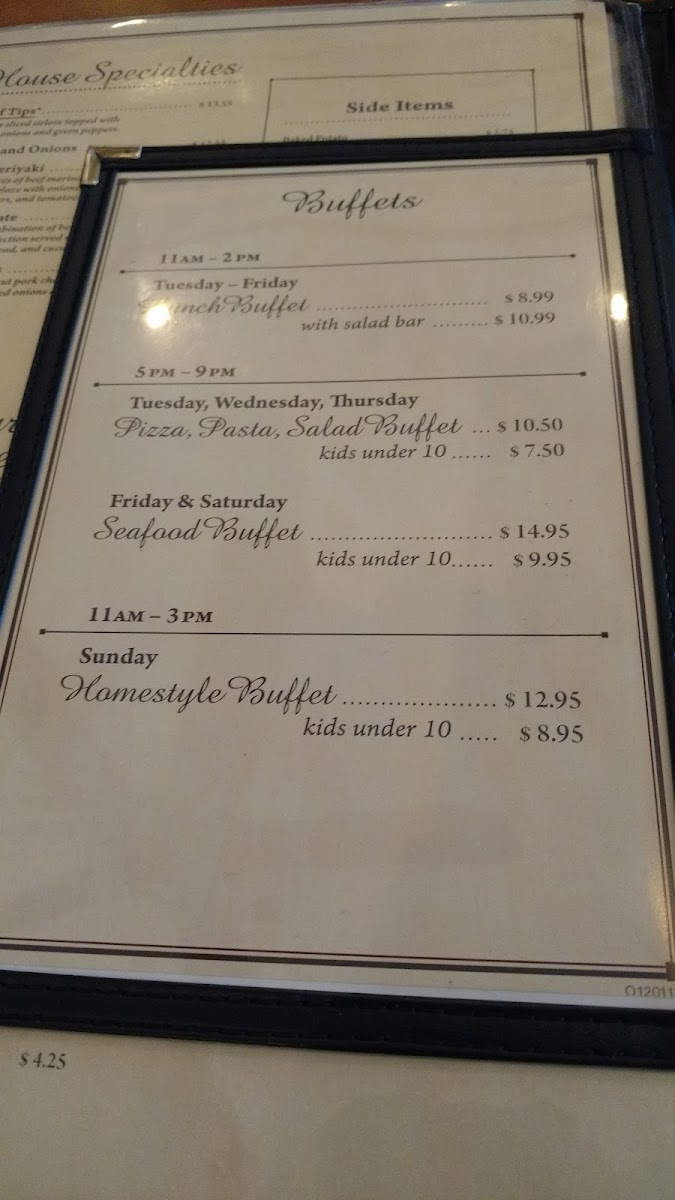 House Specialties
f Tips*.......... $ 13.55
sliced sirloin topped with
onions and green peppers.
and Onions
eriyaki
es of beef
with
and
ate
of
served
pork
onions
Side Items
Baked Potato
Buffets
11AM – 2 PM
Tuesday – Friday
Lunch Buffet .......... $ 8.99
with salad bar ......... $ 10.99
5 PM – 9 PM
Tuesday, Wednesday, Thursday
Pizza, Pasta, Salad Buffet ... $ 10.50
kids under 10 ...... $ 7.50
Friday & Saturday
Seafood Buffet .......................... $ 14.95
kids under 10...... $ 9.95
11AM – 3 PM
Sunday
Homestyle Buffet .................... $ 12.95
kids under 10 ..... $ 8.95
O12011
$ 4.25